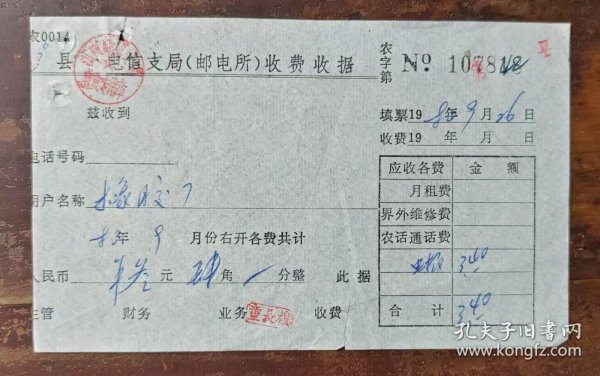 农0014
县 电信支局(邮电所)收费收据
农字第 No 1078
兹收到
填票19 86年 9月 26日
收费19 年 月 日
电话号码
用户名称 橡胶厂
86年 9 月份右开各费共计
人民币 叁元 肆角 分整 此据
主管 财务 业务 收费
应收各费 金额
月租费
界外维修费
农话通话费
3.40
合计 3.40
孔夫子旧书网
www.kongfz.com